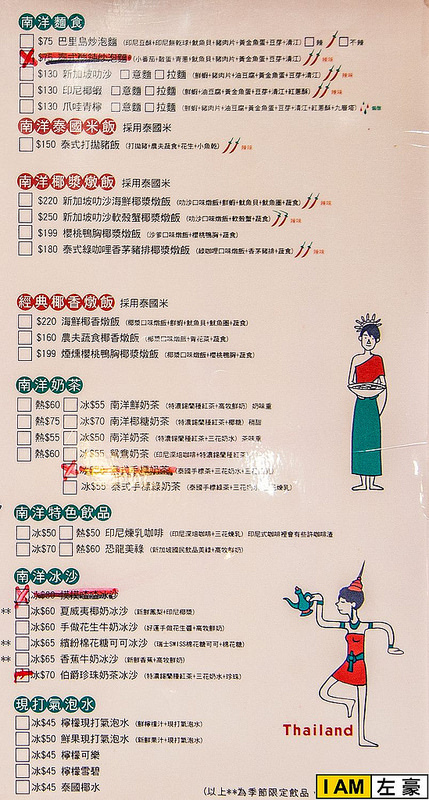 南洋麵食
$75 巴里島炒泡麵 (印尼豆酥+印尼餅乾球+魷魚貝+豬肉片+黃金魚蛋+豆芽+清江) 辣 不辣
(小番茄+散蛋+青蔥+魷魚貝+黃金魚蛋+豆芽+清江) 辣味
$130 新加坡叻沙 意麵 拉麵 (鮮蝦+豬肉片+油豆腐+黃金魚蛋+豆芽+清江) 辣味
$130 印尼椰蝦 意麵 拉麵 (鮮蝦+油豆腐+黃金魚蛋+豆芽+清江+紅蔥酥) 辣味
$130 爪哇青檸 意麵 拉麵 (鮮蝦+豬肉片+油豆腐+黃金魚蛋+豆芽+清江+紅蔥酥+九層塔)
南洋泰國米飯 採用泰國米
$150 泰式打拋豬飯 (打拋豬+農夫蔬食+花生+小魚乾) 辣味
南洋椰漿燉飯 採用泰國米
$220 新加坡叻沙海鮮椰漿燉飯 (叻沙口味燉飯+鮮蝦+魷魚貝+魷魚圈+蔬食) 辣味
$250 新加坡叻沙軟殼蟹椰漿燉飯 (叻沙口味燉飯+軟殼蟹+蔬食) 辣味
$199 櫻桃鴨胸椰漿燉飯 (沙爹口味燉飯+櫻桃鴨胸+蔬食)
$180 泰式綠咖哩香茅豬排椰漿燉飯 (綠咖哩口味燉飯+香茅豬排+蔬食) 辣味
經典椰香燉飯 採用泰國米
$220 海鮮椰香燉飯 (椰漿口味燉飯+鮮蝦+魷魚貝+魷魚圈+蔬食)
$160 農夫蔬食椰香燉飯 (椰漿口味燉飯+青花菜+蔬食)
$199 煙燻櫻桃鴨胸椰漿燉飯 (椰漿口味燉飯+櫻桃鴨胸+蔬食)
南洋奶茶
熱$60 冰$55 南洋鮮奶茶 (特濃錫蘭種紅茶+高牧鮮奶) 奶味重
熱$75 冰$70 南洋椰糖奶茶 (特濃錫蘭種紅茶+椰糖) 稍甜
熱$55 冰$50 南洋奶茶 (特濃錫蘭種紅茶+三花奶水) 茶味重
熱$60 冰$55 鴛鴦奶茶 (印尼深焙咖啡+特濃錫蘭種紅茶)
冰$55 泰式手標綠奶茶 (泰國手標綠茶+三花奶水+三花煉乳)
南洋特色飲品
冰$50 熱$50 印尼煉乳咖啡 (印尼深焙咖啡+三花煉乳) 印尼式咖啡裡會有些許咖啡渣
冰$70 熱$60 恐龍美祿 (新加坡國民飲品美祿+高牧鮮奶)
南洋冰沙
**冰$60 夏威夷椰奶冰沙 (新鮮鳳梨+印尼椰漿)
冰$60 手做花生牛奶冰沙 (好蓮手做花生醬+高牧鮮奶)
**冰$65 繽紛棉花糖可可冰沙 (瑞士SWISS棉花糖可可+棉花糖)
**冰$65 香蕉牛奶冰沙 (新鮮香蕉+高牧鮮奶)
冰$70 伯爵珍珠奶茶冰沙 (特濃錫蘭種紅茶+三花奶水+珍珠)
現打氣泡水
冰$50 檸檬現打氣泡水 (鮮檸檬汁+現打氣泡水)
冰$50 鮮果現打氣泡水 (新鮮果汁+現打氣泡水)
冰$45 檸檬可樂
冰$45 檸檬雪碧
冰$45 泰國椰水
Thailand
(以上**為季節限定飲品
I AM 左豪